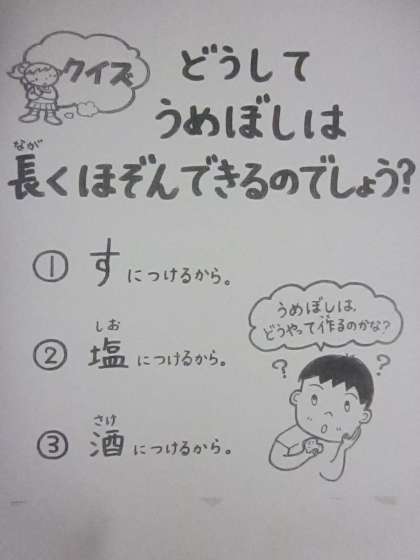 クイズ
どうして
うめぼしは
長くほぞんできるのでしょう?
なが
① すにつけるから。
② 塩につけるから。
しお
③ 酒につけるから。
さけ
うめぼしは、
どうやって作るのかな?
? ?